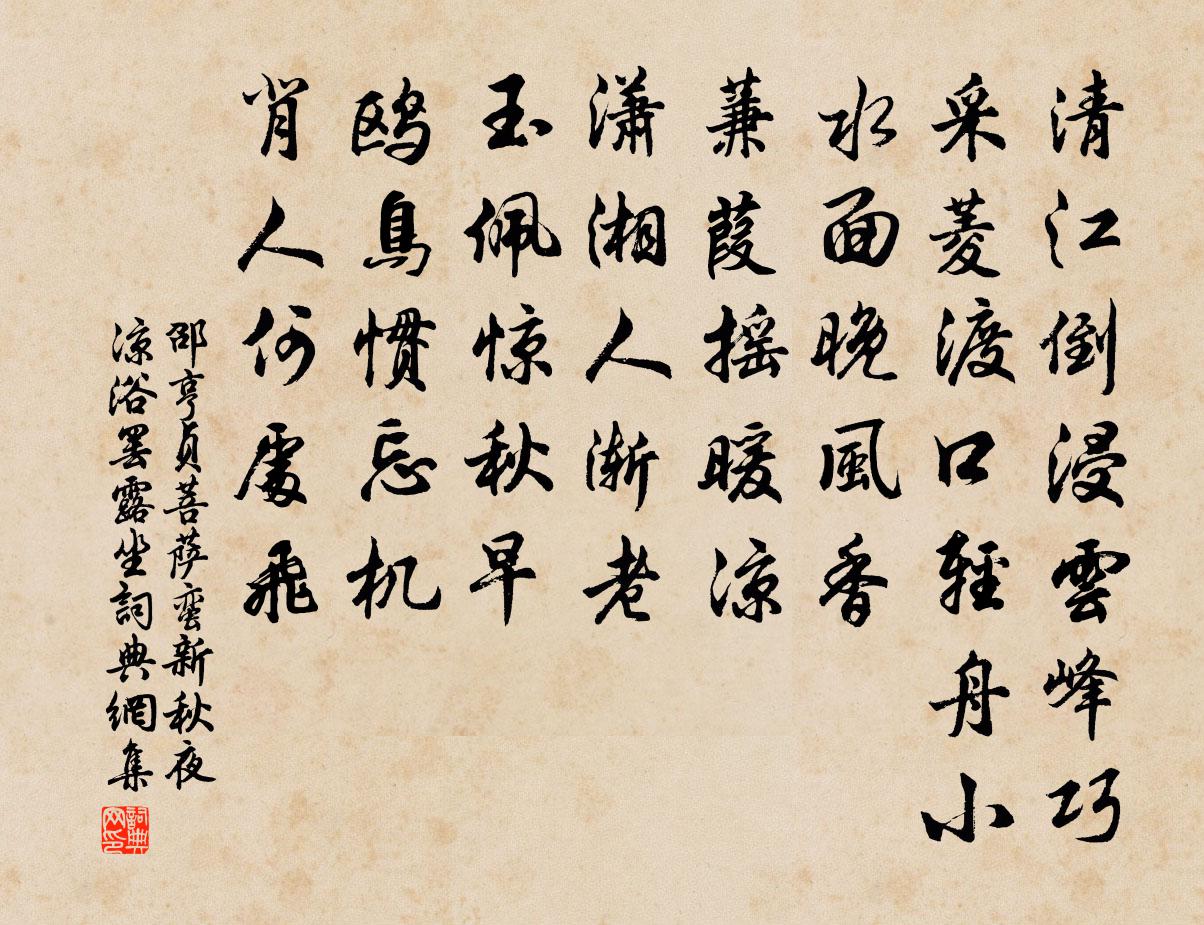 清江倒浸雲峰巧
采菱渡口輕舟小
水面晚風香
蒹葭摇暖凉
瀟湘人渐老
玉佩惊秋早
鸥鳥慣忘机
肖人何處飛
邵亨貞菩萨蛮新秋夜
凉浴罢露坐詞典網集
詞典
网印